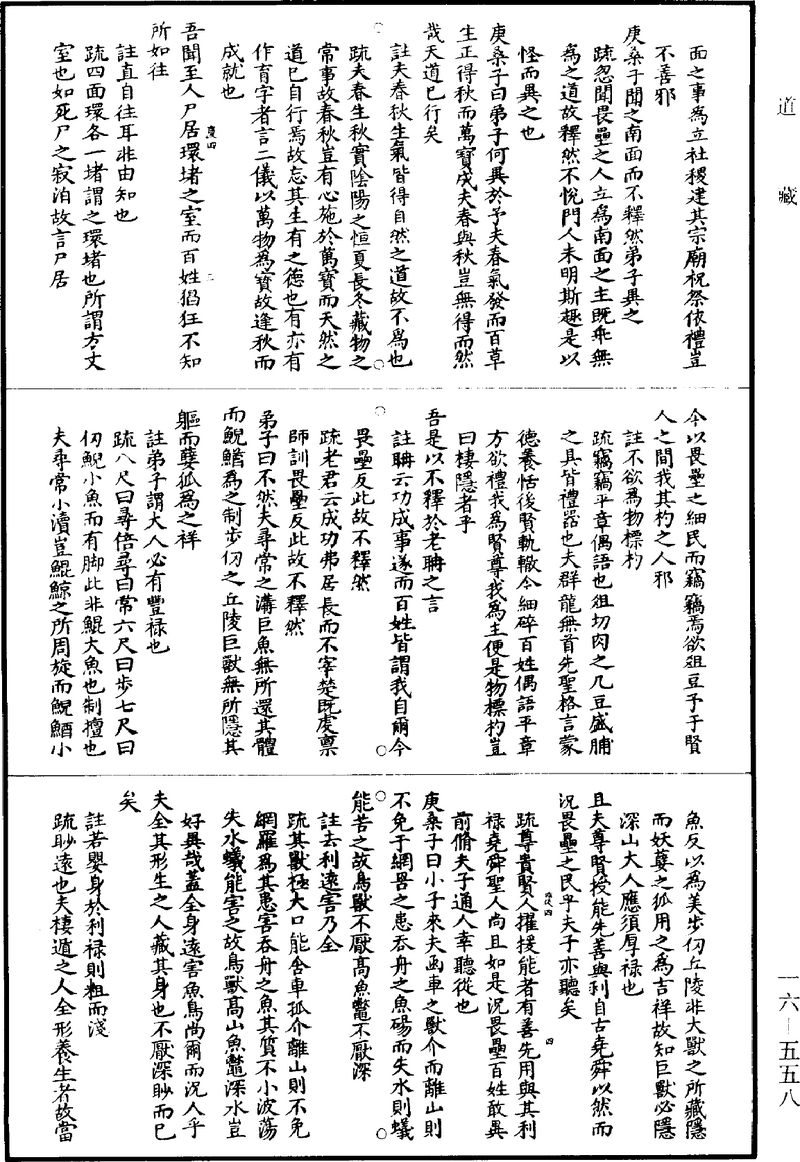 道藏
面之事爲立社稷建其宗廟祝祭依禮豈
不善邪
庚桑子聞之南面而不釋然弟子異之
疏忽聞畏壘之人立爲南面之主既乖無
爲之道故釋然不悅門人未明斯趣是以
怪而異之也
庚桑子曰弟子何異於予夫春氣發而百草
生正得秋而萬寶成夫春與秋豈無得而然
哉天道已行矣
註夫春秋生氣皆得自然之道故不爲也
疏夫春生秋實陰陽之恒夏長冬藏物之
常事故春秋豈有心施於萬寶而天然之
道已自行焉故忘其生有之德也有亦有
作育字者言二儀以萬物爲寶故逢秋而
成就也
吾聞至人尸居環堵之室而百姓猖狂不知
所如往
註直自往耳非由知也
疏四面環各一堵謂之環堵也所謂方丈
室也如死尸之寂泊故言尸居
今以畏壘之細民而竊竊焉欲俎豆予于賢
人之間我其杓之人邪
註不欲爲物標杓
疏竊竊平章偶語也俎切肉之几豆盛脯
之具皆禮器也夫群龍無首先聖格言蒙
德養恬後賢軌轍今細碎百姓偶語平章
方欲禮我爲賢尊我爲主便是物標杓豈
曰棲隱者乎
吾是以不釋於老聃之言
註聃云功成事遂而百姓皆謂我自爾今
畏壘反此故不釋然
疏老君云成功弗居長而不宰楚既虔禀
師訓畏壘反此故不釋然
弟子曰不然夫尋常之溝巨魚無所還其體
而鯢鰌爲之制步仞之丘陵巨獸無所隱其
軀而孽狐爲之祥
註弟子謂大人必有豐禄也
疏八尺曰尋倍尋曰常六尺曰步七尺曰
仞鯢小魚而有脚此非鯤大魚也制擅也
夫尋常小瀆豈鯤鯨之所周旋而鯢鰌小
魚反以爲美步仞丘陵非大獸之所藏隱
而妖孽之狐用之爲吉祥故知巨獸必隱
深山大人應須厚禄也
且夫尊賢授能先善與利自古堯舜以然而
況畏壘之民乎夫子亦聽矣
疏尊貴賢人擢授能者有善先用與其利
禄堯舜聖人尚且如是況畏壘百姓敢異
前脩夫子通人幸聽從也
庚桑子曰小子來夫函車之獸介而離山則
不免于網罟之患吞舟之魚碭而失水則蟻
能苦之故鳥獸不厭高魚鼈不厭深
註去利遠害乃全
疏其獸極大口能含車孤介離山則不免
網羅爲其患害吞舟之魚其質不小波蕩
失水蟻能害之故鳥獸高山魚鼈深水豈
好異哉蓋全身遠害魚鳥尚爾而況人乎
夫全其形生之人藏其身也不厭深眇而已
矣
註若嬰身於利禄則粗而淺
疏眇遠也夫棲遁之人全形養生者故當
一六—五五八